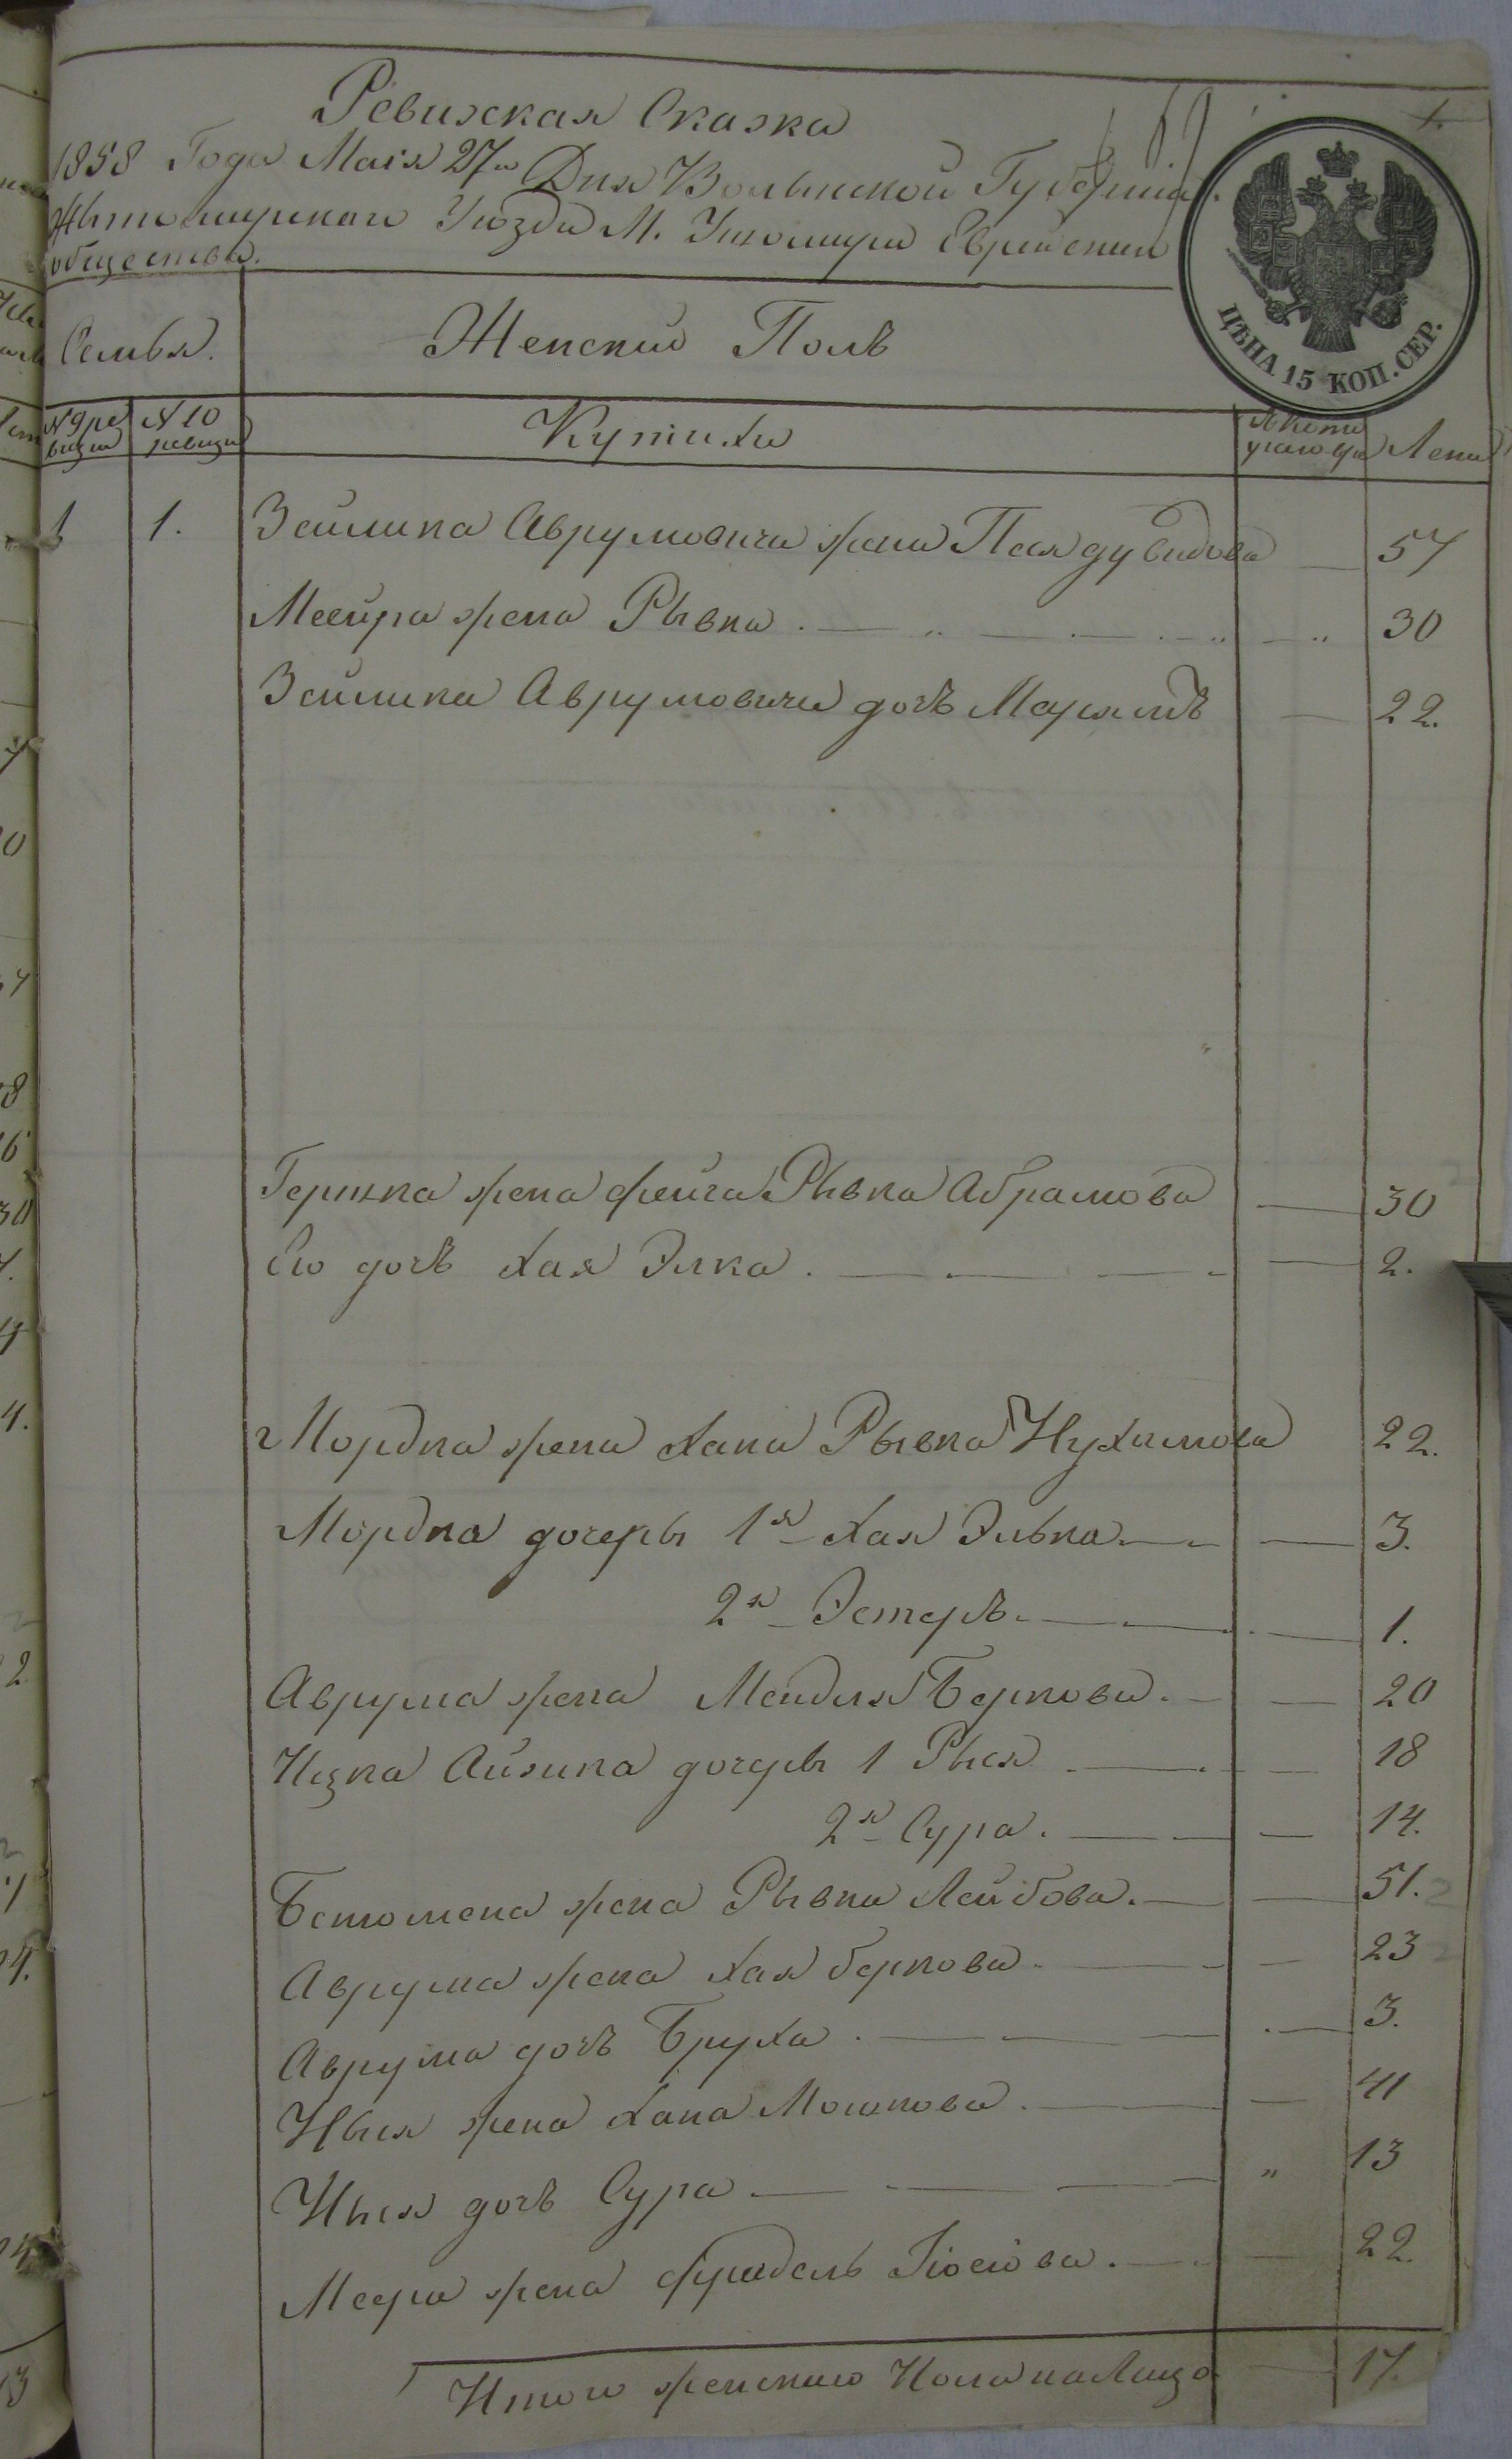 Ревижская Сказка
1858 Года Маія 27го Дня Волынской Губерніи.
Жытомирскаго Уюзда М. Ушомира Еврейския
общества.
ЦѢНА 15 КОП. СЕР.
Семья. Женский Полъ
№ 9 ре
визии
№ 10
ревизи
Купчихи
Лета
1 1. Зейлика Аврумовича жена Песя дувидова — 57
Меейра жена Рывка . — „ — 30
Зейлика Аврумовича дочъ Марямъ — 22.
Гершка жена фейга Рывка Абрамова — 30
Его дочъ Хая Элка . — 2.
Мордка жена Хана Рывка Нухимова 22.
Мордка дочеры 1я Хая Элька — 3.
2я Эстеръ — 1.
Аврума жена Мендля Беркова . — 20
Ицка Айзика дочеры 1 Рыся — 18
2я Сура . — 14.
жена Рывка Лейбова . — 51.
Аврума жена Хая беркова . — 23
Аврума дочъ Бруха . — 3.
жена Хана Мошкова . — 41
дочъ Сура — „ 13
Меера жена фрадель Іосіова . — 22.
Итого женскаго Пола на Лицо — 17.